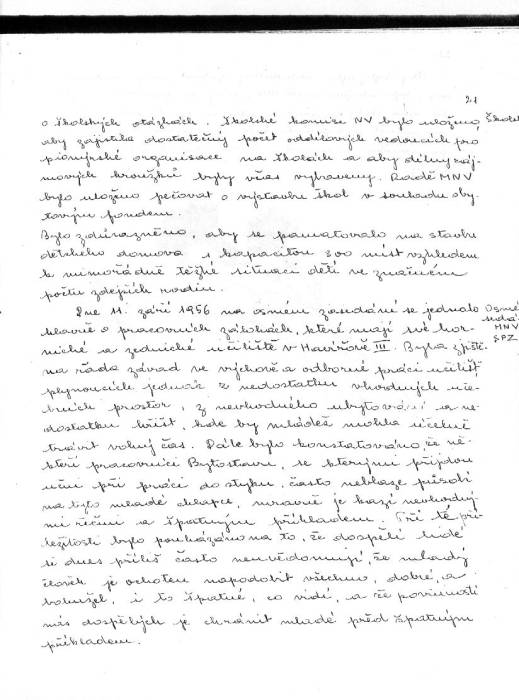 21
o školských otázkách. Školské komisi NV bylo uloženo, Škols
aby zajistila dostatečný počet oddílových vedoucích pro
pionýrské organisace na školách a aby dílny záj-
mových kroužků byly včas vybaveny. Radě MNV
bylo uloženo pečovat o výstavbu škol v souladu s by-
tovým fondem.
Bylo zdůrazněno, aby se pamatovalo na stavbu
dětského domova s kapacitou 300 míst vzhledem
k mimořádně těžké situaci dětí ve značném
počtu zdejších rodin.
Dne 11. září 1956 na osmém zasedání se jednalo Osmé
hlavně o pracovních zálohách, které mají své hor-
nické a zednické učiliště v Havířově III. Byla zjiště- MNV
na řada závad ve výchově a odborné práci učilišť SPZ
plynoucích jednak z nedostatku vhodných uče-
bních prostor, z nevhodného ubytování a ne-
dostatku hřišť, kde by mládež mohla účelně
trávit volný čas. Dále bylo konstatováno, že ně-
kteří pracovníci Bytostavu, se kterými přijdou
učni při práci do styku, často neblaze působí
na tyto mladé chlapce, mravně je kazí nevhodný-
mi řečmi a špatným příkladem. Při té pří-
ležitosti bylo poukázáno na to, že dospělí lidé
si dnes příliš často neuvědomují, že mladý
člověk je ochoten napodobit všechno, dobré, a
bohužel, i to špatné, co vidí, a že povinností
nás dospělých je chránit mladé před špatným
příkladem.